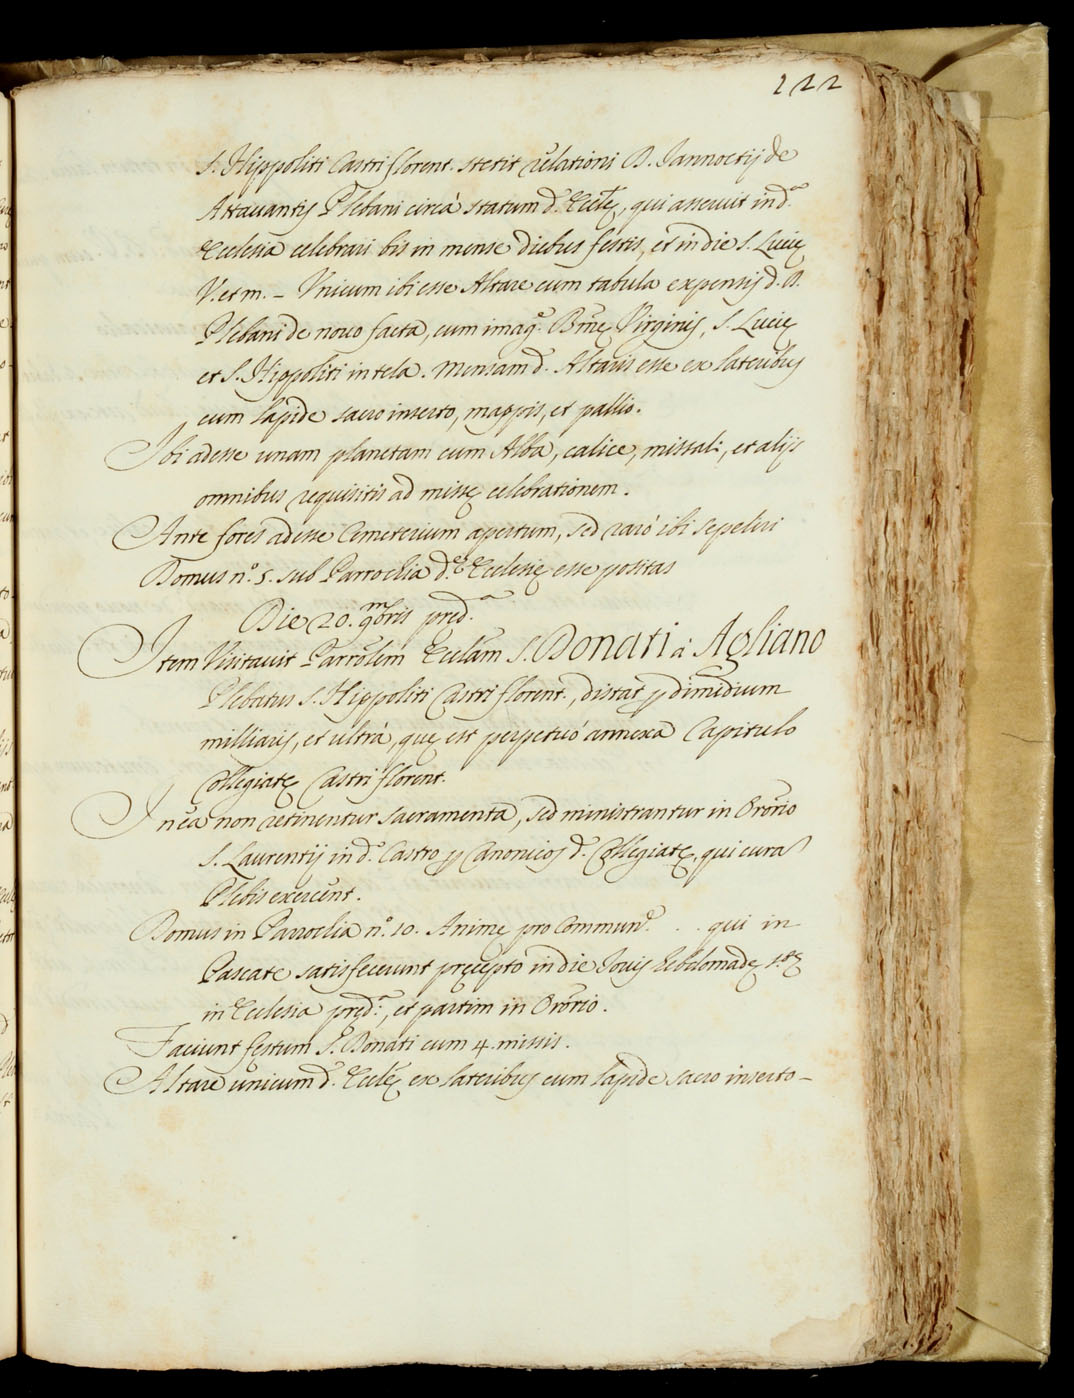 122
S. Hippoliti Castri floren.t stetit relationi D. Iannoctij de
Attauantis Plebani circà statum d.ę Eccl.ę, qui asseruit in d.ª
Ecclesia celebrari bis in mense diebus festis, et in die S. Lucię
V. et m. - Vnicum ibi esse Altare cum tabula expensis d. D.
Plebani de nouo facta, cum imag.e Bmę Virginis, S. Lucię
et S. Hippoliti in tela. Mensam d. Altaris esse ex lateribus
cum lapide sacro inserto, mappis, et pallio.
Ibi adesse unam planetam cum Alba, calice, missali, et alijs
omnibus requisitis ad missę celebrationem.
Ante fores adesse Cemeterium apertum, sed rarò ibi sepeliri
Domus n.º 5. sub Parrochia d.ę Ecclesię esse positas
Die 20. 9mbris pred.ª
Item Visitauit Parrõlem Ecclãm S. Donati à Agliano
Plebatus S. Hippoliti Castri floren.t, distat p dimidium
milliaris, et ultrà, quę est perpetuò annexa Capitulo
Collegiatę Castri floren.t
In ea non retinentur sacramenta, sed ministrantur in Orõrio
S. Laurentij in d.º Castro p Canonicos d.ę Collegiatę, qui cura
Plebis exercent.
Domus in Parrochia n.º 10. Animę pro Commun.e . . qui in
Pascate satisfecerunt pręcepto in die Iouis hebdomadę s.tę
in Ecclesia pręd.ª, et partim in Orõrio.
Faciunt festum S. Donati cum 4. missis.
Altare unicum d.ę Eccl.ę ex lateribus cum lapide sacro inserto -